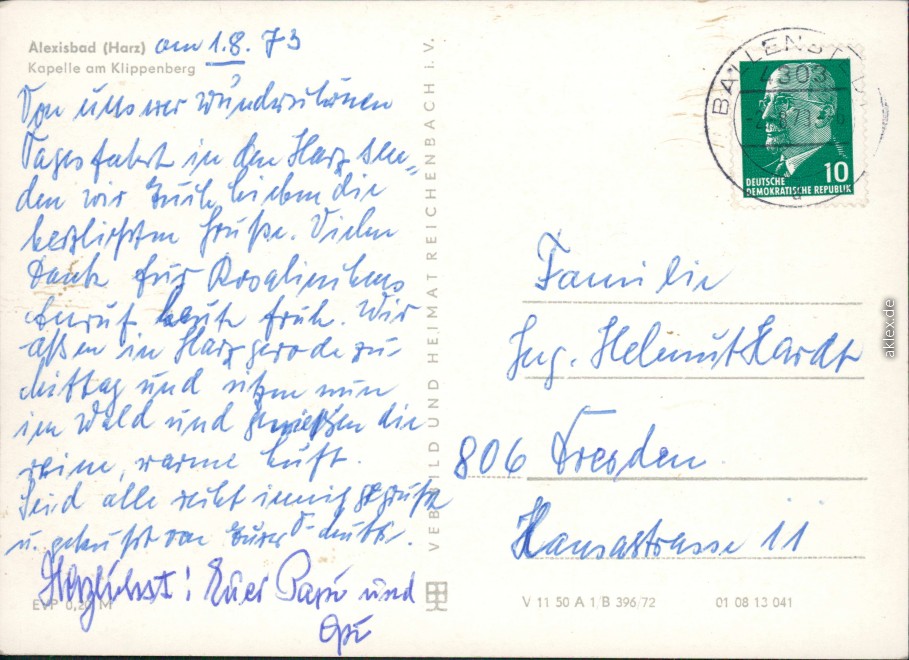 Alexisbad (Harz) am 1.8.73
Kapelle am Klippenberg
Von unserer wunderschönen
Tagesfahrt in den Harz sen-
den wir Euch lieben die
herzlichsten Grüße. Vielen
Dank für Rosalinchens
Anruf heute früh. Wir
aßen in Harzgerode zu
Mittag und sitzen nun
im Wald und genießen die
reine, warme Luft.
Seid alle recht innig gegrüßt
u. geküßt von Eurer
Herzlichst! Euer Papi und
Opi
EVP 0,20 M
VEB BILD UND HEIMAT REICHENBACH I. V.
BALLENSTEDT
4303
DEUTSCHE
DEMOKRATISCHE REPUBLIK
10
Familie
Ing. Helmut Hardt
806 Dresden
Hansastrasse 11
V 11 50 A 1/B 396/72 01 08 13 041
aklex.de